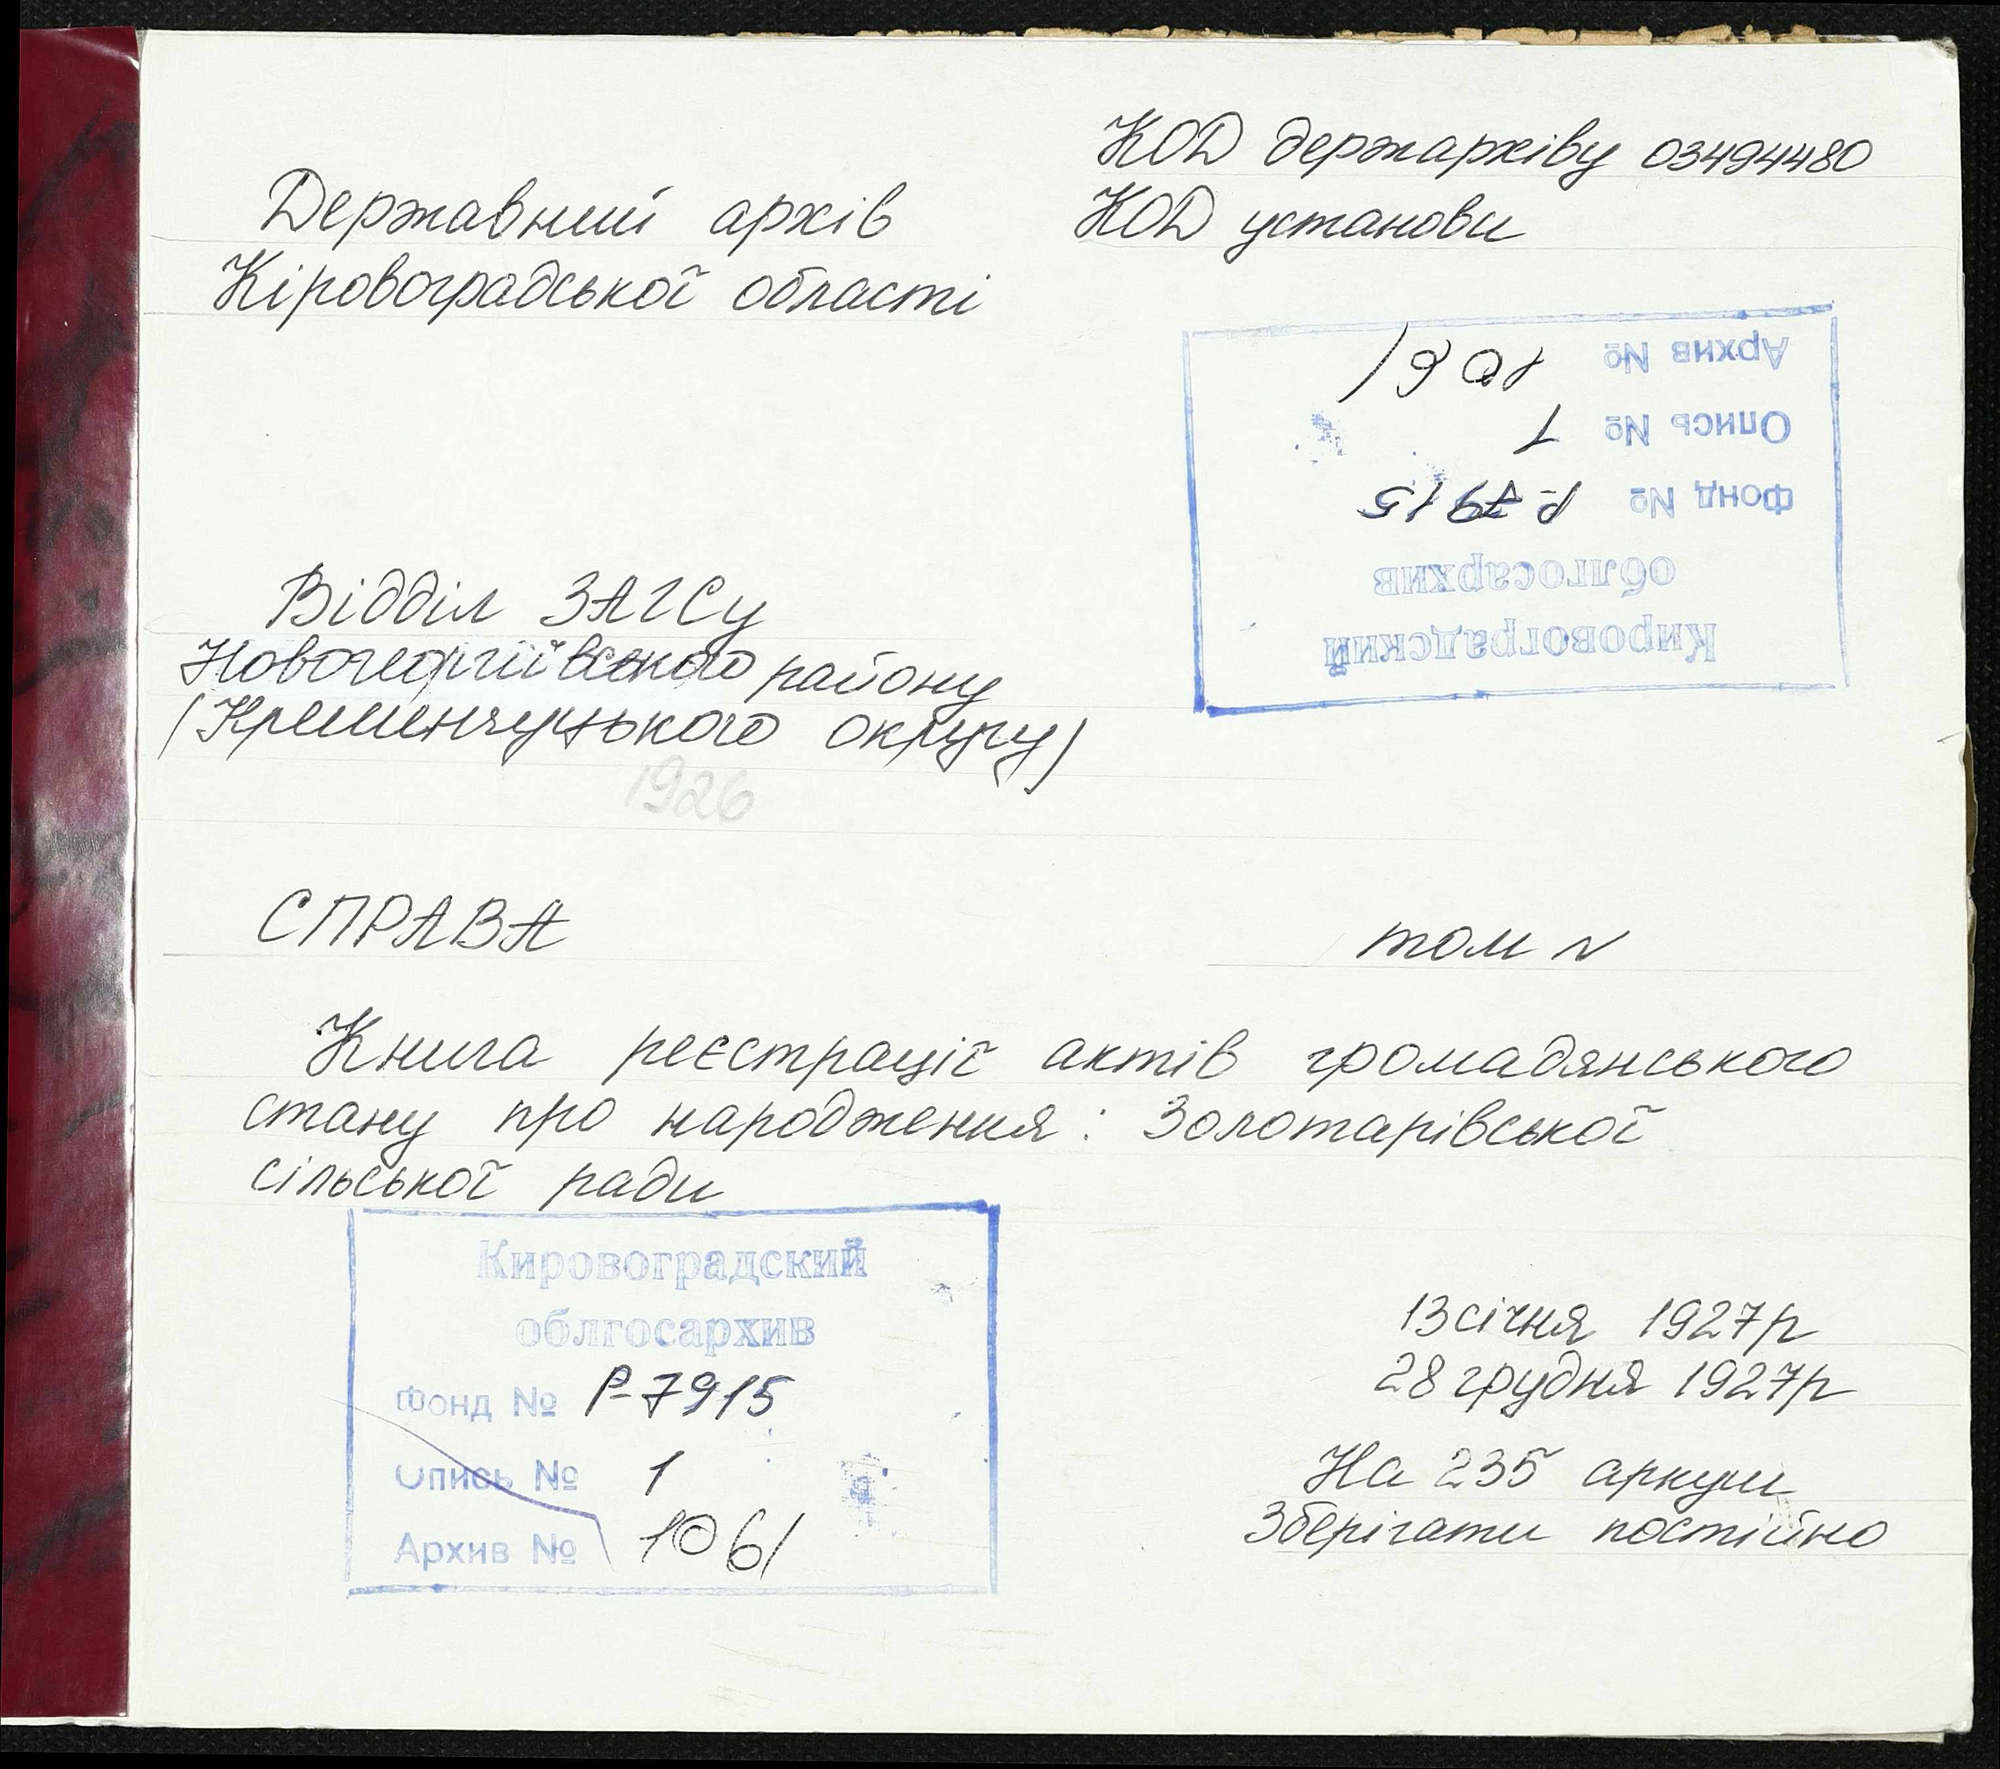 КОД держархіву 03494480
Державний архів
КОД установи
Кіровоградської області
Архив № 1061
Опись № 1
Фонд № Р-7915
облгосархив
Кировоградский
Відділ ЗАГСу
Новогеоргіївського району
(Кременчуцького округу)
1926
СПРАВА
том N
Книга реєстрації актів громадянського
стану про народження: Золотарівської
сільської ради
Кировоградский
облгосархив
Фонд № Р-7915
Опись № 1
Архив № 1061
13 січня 1927р
28 грудня 1927р
На 235 аркуш
Зберігати постійно